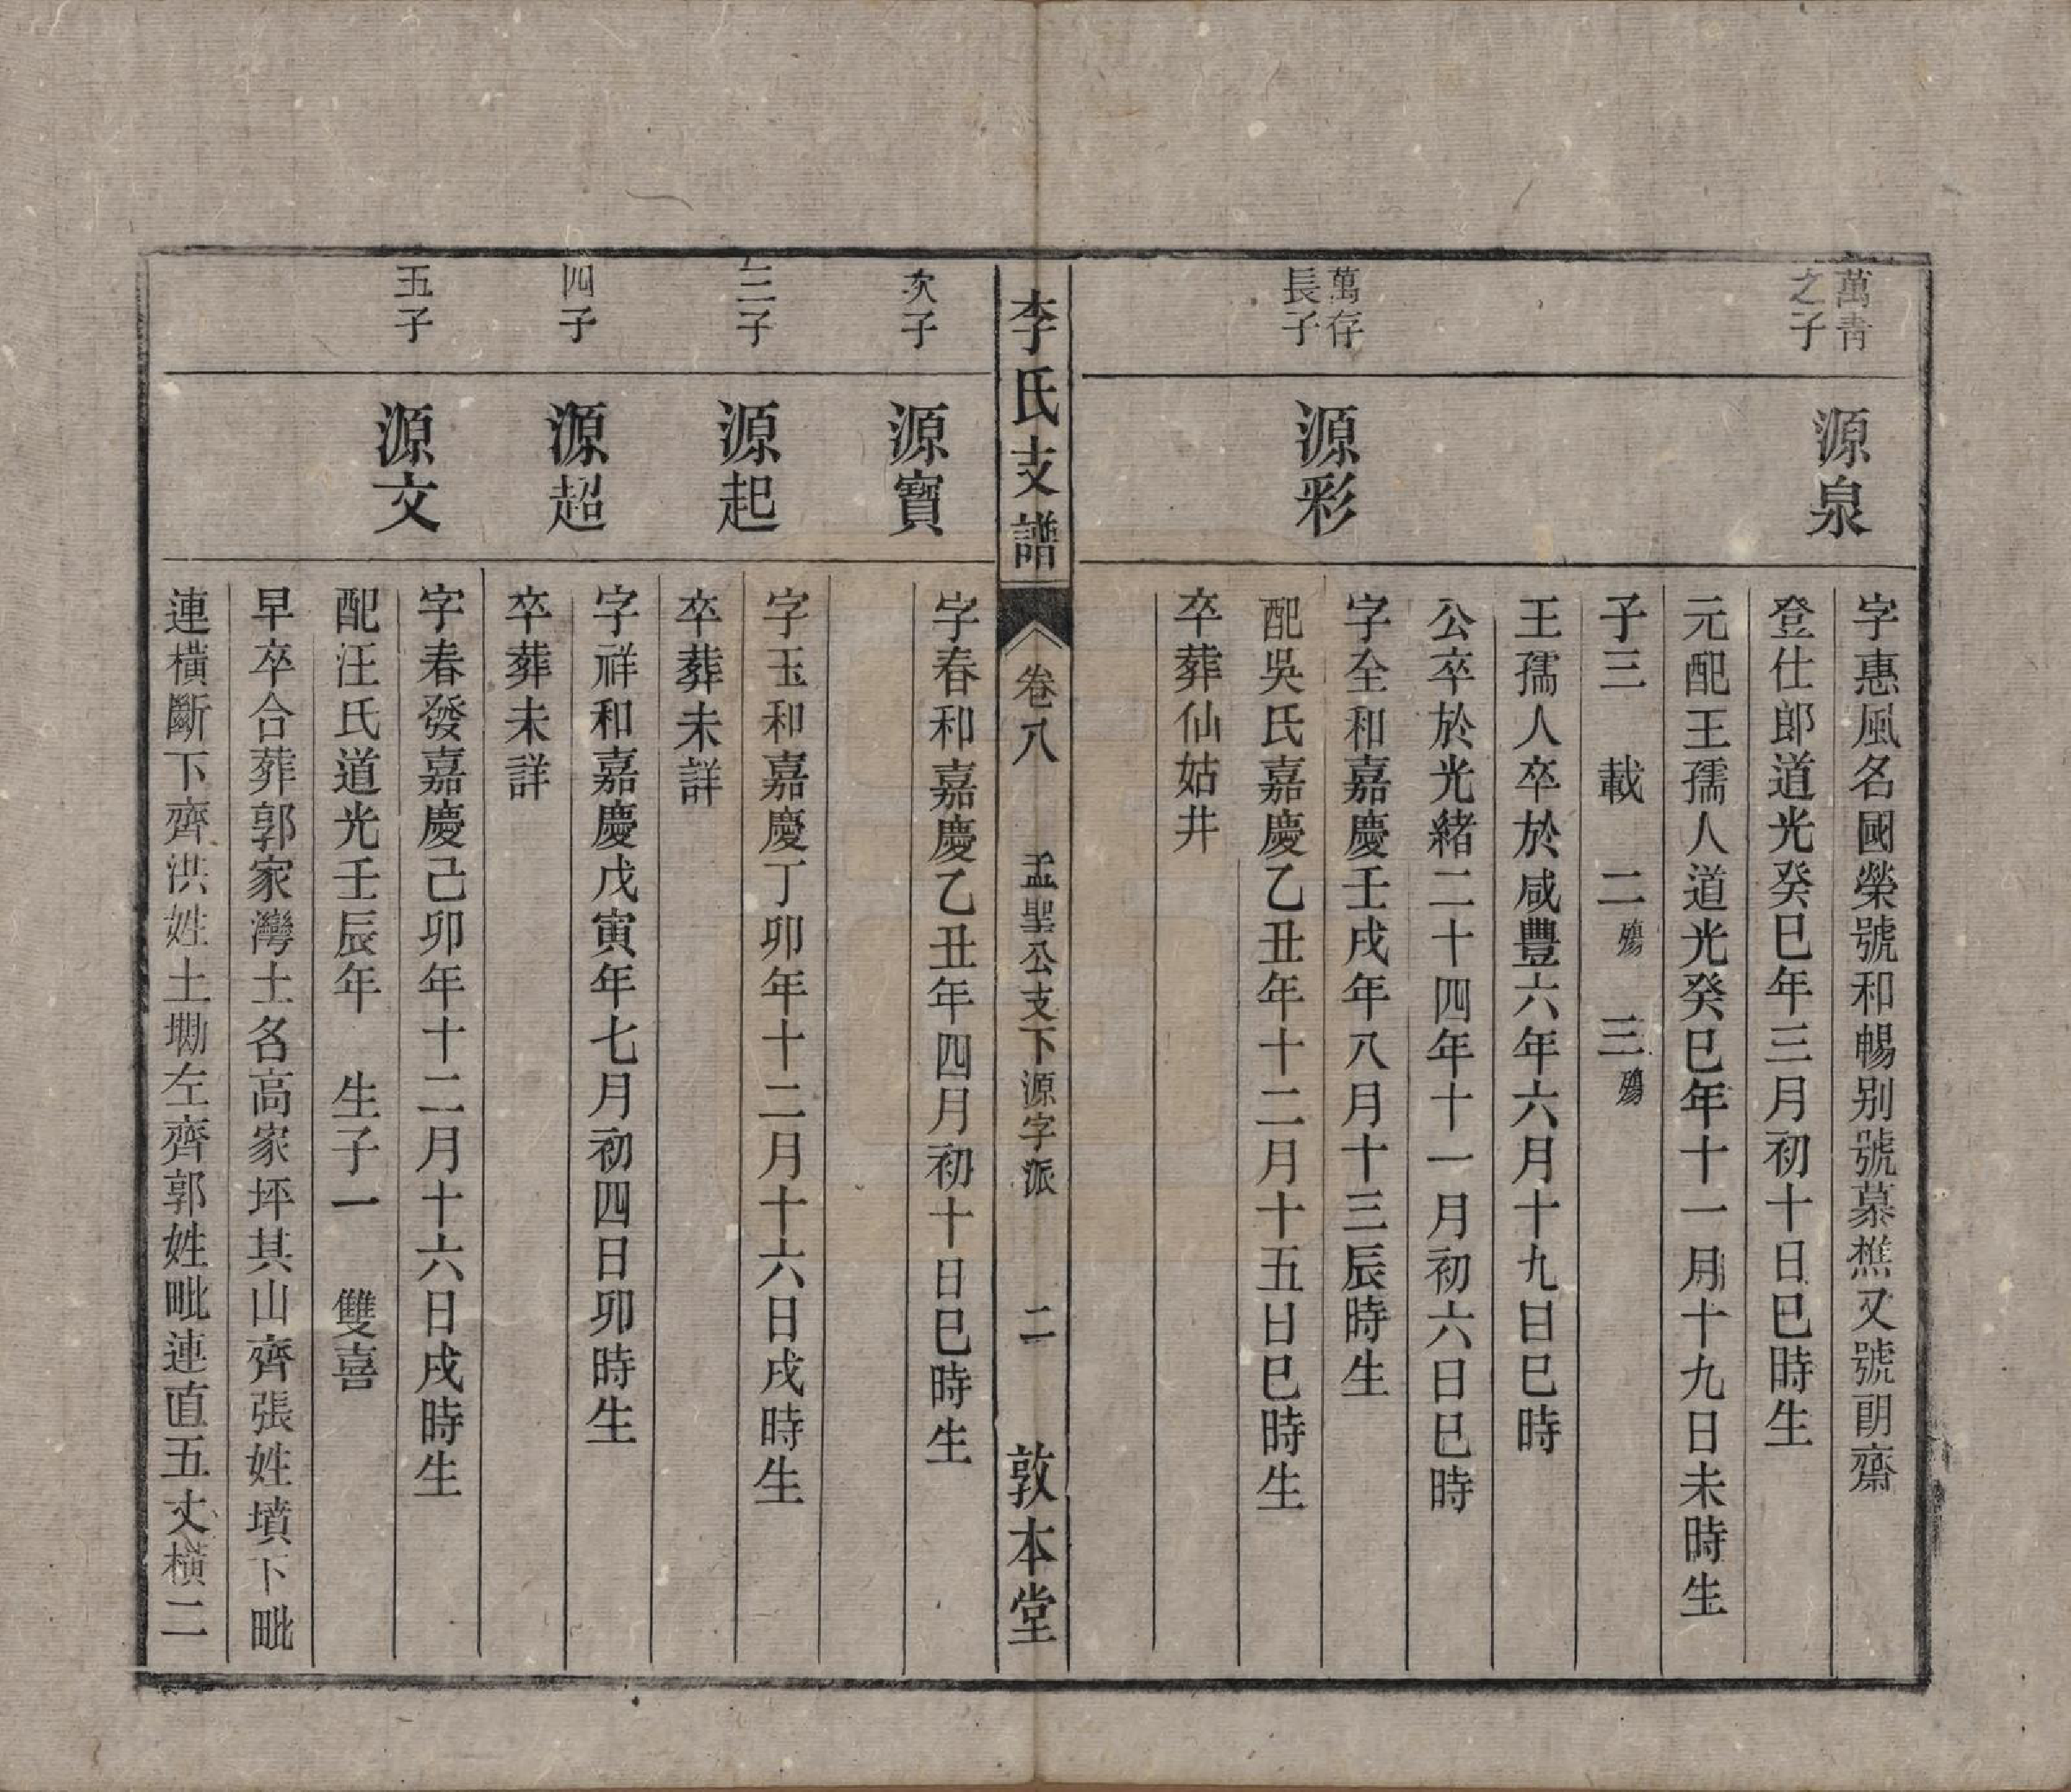 萬青
之子
源泉
字惠風名國榮號和暢别號慕樵又號朗齋
登仕郎道光癸巳年三月初十日巳時生
元配王孺人道光癸巳年十一月十九日未時生
子三 載 二殤 三殤
王孺人卒於咸豐六年六月十九日巳時
公卒於光緒二十四年十一月初六日巳時
萬存
長子
源彩
字全和嘉慶壬戌年八月十三辰時生
配吳氏嘉慶乙丑年十二月十五日巳時生
卒葬仙姑井
李氏支譜 卷八 孟聖公支下源字派 二 敦本堂
次子
源寶
字春和嘉慶乙丑年四月初十日巳時生
三子
源起
字玉和嘉慶丁卯年十二月十六日戌時生
卒葬未詳
四子
源超
字祥和嘉慶戊寅年七月初四日卯時生
卒葬未詳
五子
源文
字春發嘉慶己卯年十二月十六日戌時生
配汪氏道光壬辰年 生子一 雙喜
早卒合葬郭家灣土名高家坪其山齊張姓墳下毗
連橫斷下齊洪姓土墈左齊郭姓毗連直五丈橫二